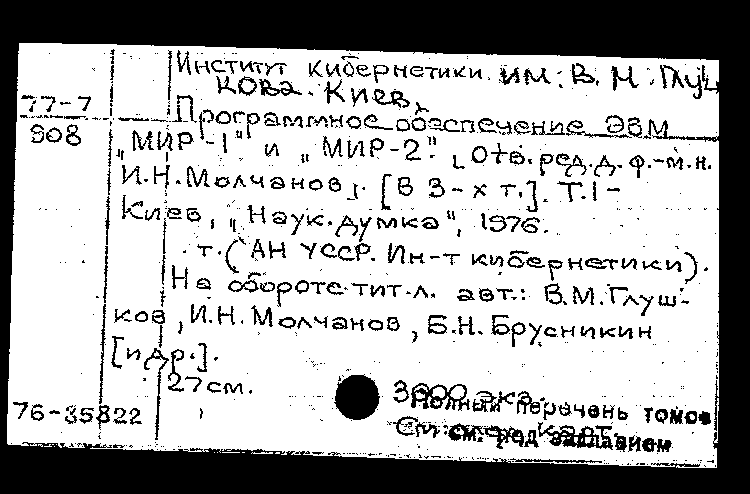 Институт кибернетики им. В. М. Глуш
кова. Киев.
77-7
908
Программное обеспечение ЭВМ
„МИР-1" и „МИР-2". [Отв. ред. д. ф.-м. н.
И.Н. Молчанов]. [В 3-х т.]. Т. 1-
Киев, „Наук. думка", 1976.
т. (АН УССР. Ин-т кибернетики).
На обороте тит. л. авт.: В.М. Глуш-
ков, И.Н. Молчанов, Б.Н. Брусникин
[и др.].
27 см.
3600 экз.
Полный перечень томов
см. под заглавием
76-35822